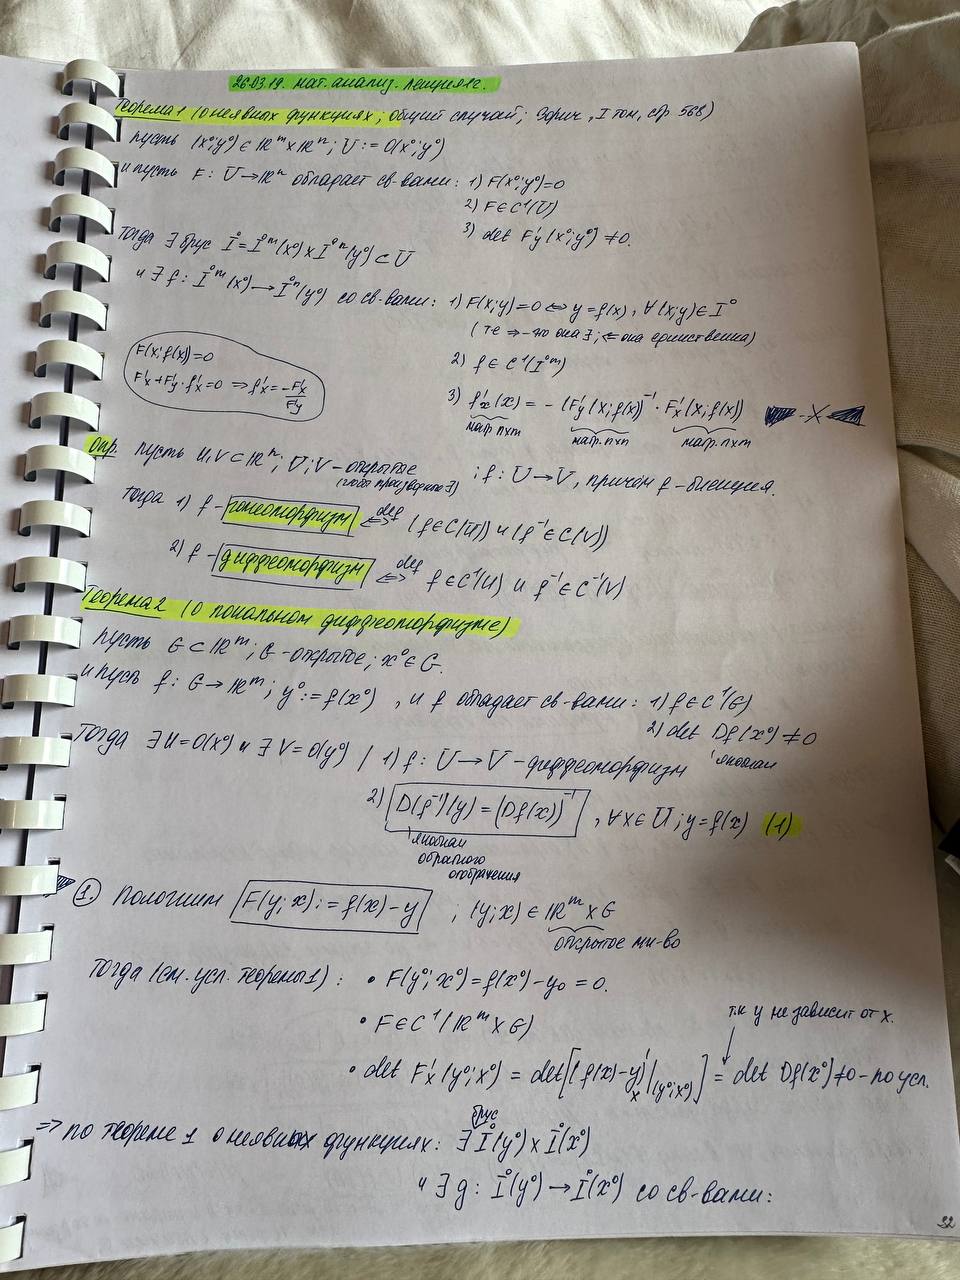 26.03.19. мат. анализ. Лекция 12.
Теорема 1 (о неявных функциях; общий случай; Зорич, I том, стр 568)
Пусть (x°; y°) ∈ ℝᵐ × ℝⁿ; U := O(x°; y°)
и пусть F: U → ℝⁿ обладает св-вами: 1) F(x°; y°) = 0
2) F ∈ C¹(U)
3) det F'y (x°; y°) ≠ 0.
Тогда ∃ брус I° = I°ᵐ(x°) × I°ⁿ(y°) ⊂ U
и ∃ f: I°ᵐ(x°) → I°ⁿ(y°) со св-вами: 1) F(x; y) = 0 ⇔ y = f(x), ∀(x; y) ∈ I°
(те ⇒ - что она ∃; ⇐ она единственна)
2) f ∈ C¹(I°ᵐ)
3) f'x(x) = - (F'y (x; f(x)))⁻¹ · F'x (x; f(x)) - X -
матр. n×m матр. n×n матр. n×m
F(x; f(x)) = 0
F'x + F'y · f'x = 0 ⇒ f'x = - F'x / F'y
Опр. Пусть U, V ⊂ ℝⁿ; U; V - открытое ; f: U → V, причём f - биекция.
(чтобы производная ∃)
Тогда 1) f - гомеоморфизм ⇔ def (f ∈ C(U)) и (f⁻¹ ∈ C(V))
2) f - диффеоморфизм ⇔ def f ∈ C¹(U) и f⁻¹ ∈ C⁻¹(V)
Теорема 2 (о локальном диффеоморфизме)
Пусть G ⊂ ℝᵐ; G - открытое; x° ∈ G.
и пусть f: G → ℝᵐ; y° := f(x°), и f обладает св-вами: 1) f ∈ C¹(G)
2) det Df(x°) ≠ 0
якобиан
Тогда ∃ U = O(x°) и ∃ V = O(y°) / 1) f: U → V - диффеоморфизм
2) D(f⁻¹)(y) = (Df(x))⁻¹ , ∀x ∈ U; y = f(x) (1)
якобиан
обратного
отображения
1. Положим F(y; x) := f(x) - y ; (y; x) ∈ ℝᵐ × G
открытое мн-во
Тогда (см. усл. теоремы 1): • F(y°; x°) = f(x°) - y₀ = 0.
• F ∈ C¹(ℝᵐ × G)
т.к y не зависит от x.
• det F'x (y°; x°) = det[(f(x) - y)'x |(y°; x°)] = det Df(x°) ≠ 0 - по усл.
⇒ по теореме 1 о неявных функциях: ∃ брус I°(y°) × I°(x°)
и ∃ g: I°(y°) → I°(x°) со св-вами:
32